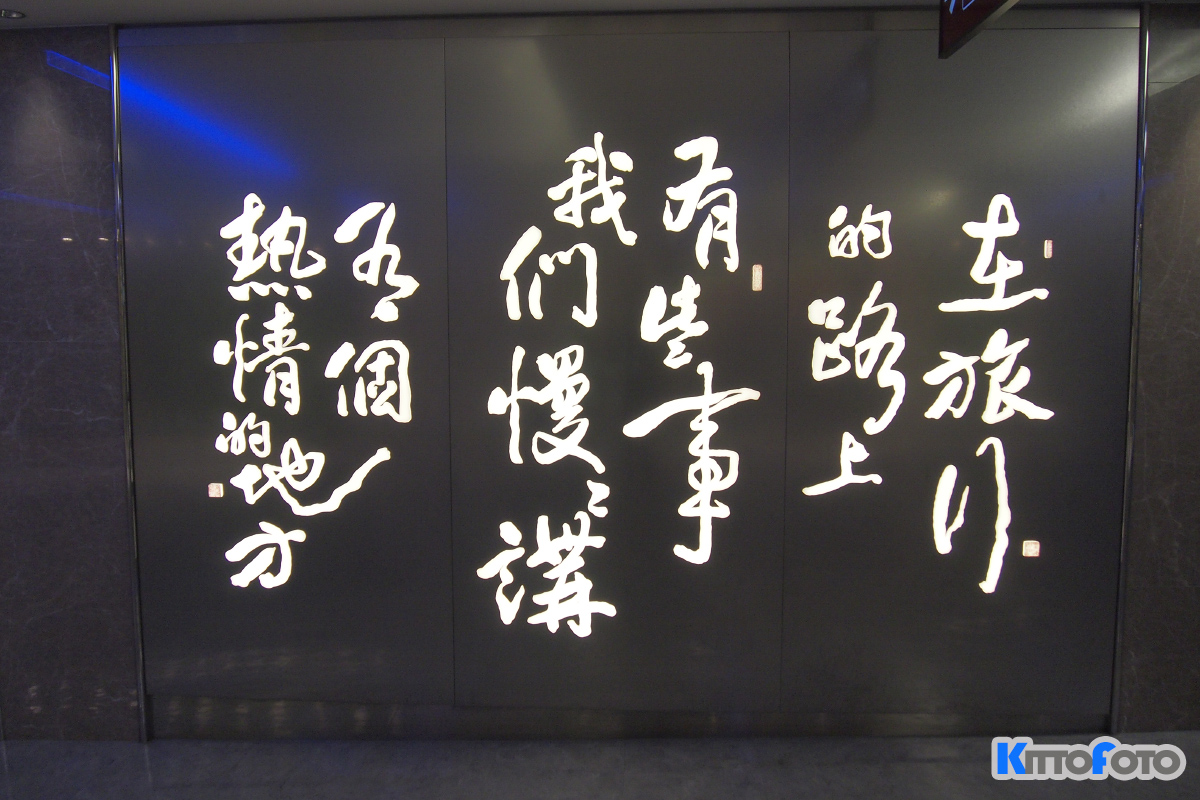 在旅行
的路上
有些事
我們慢慢講
有個
熱情的地方
KITTOFOTO